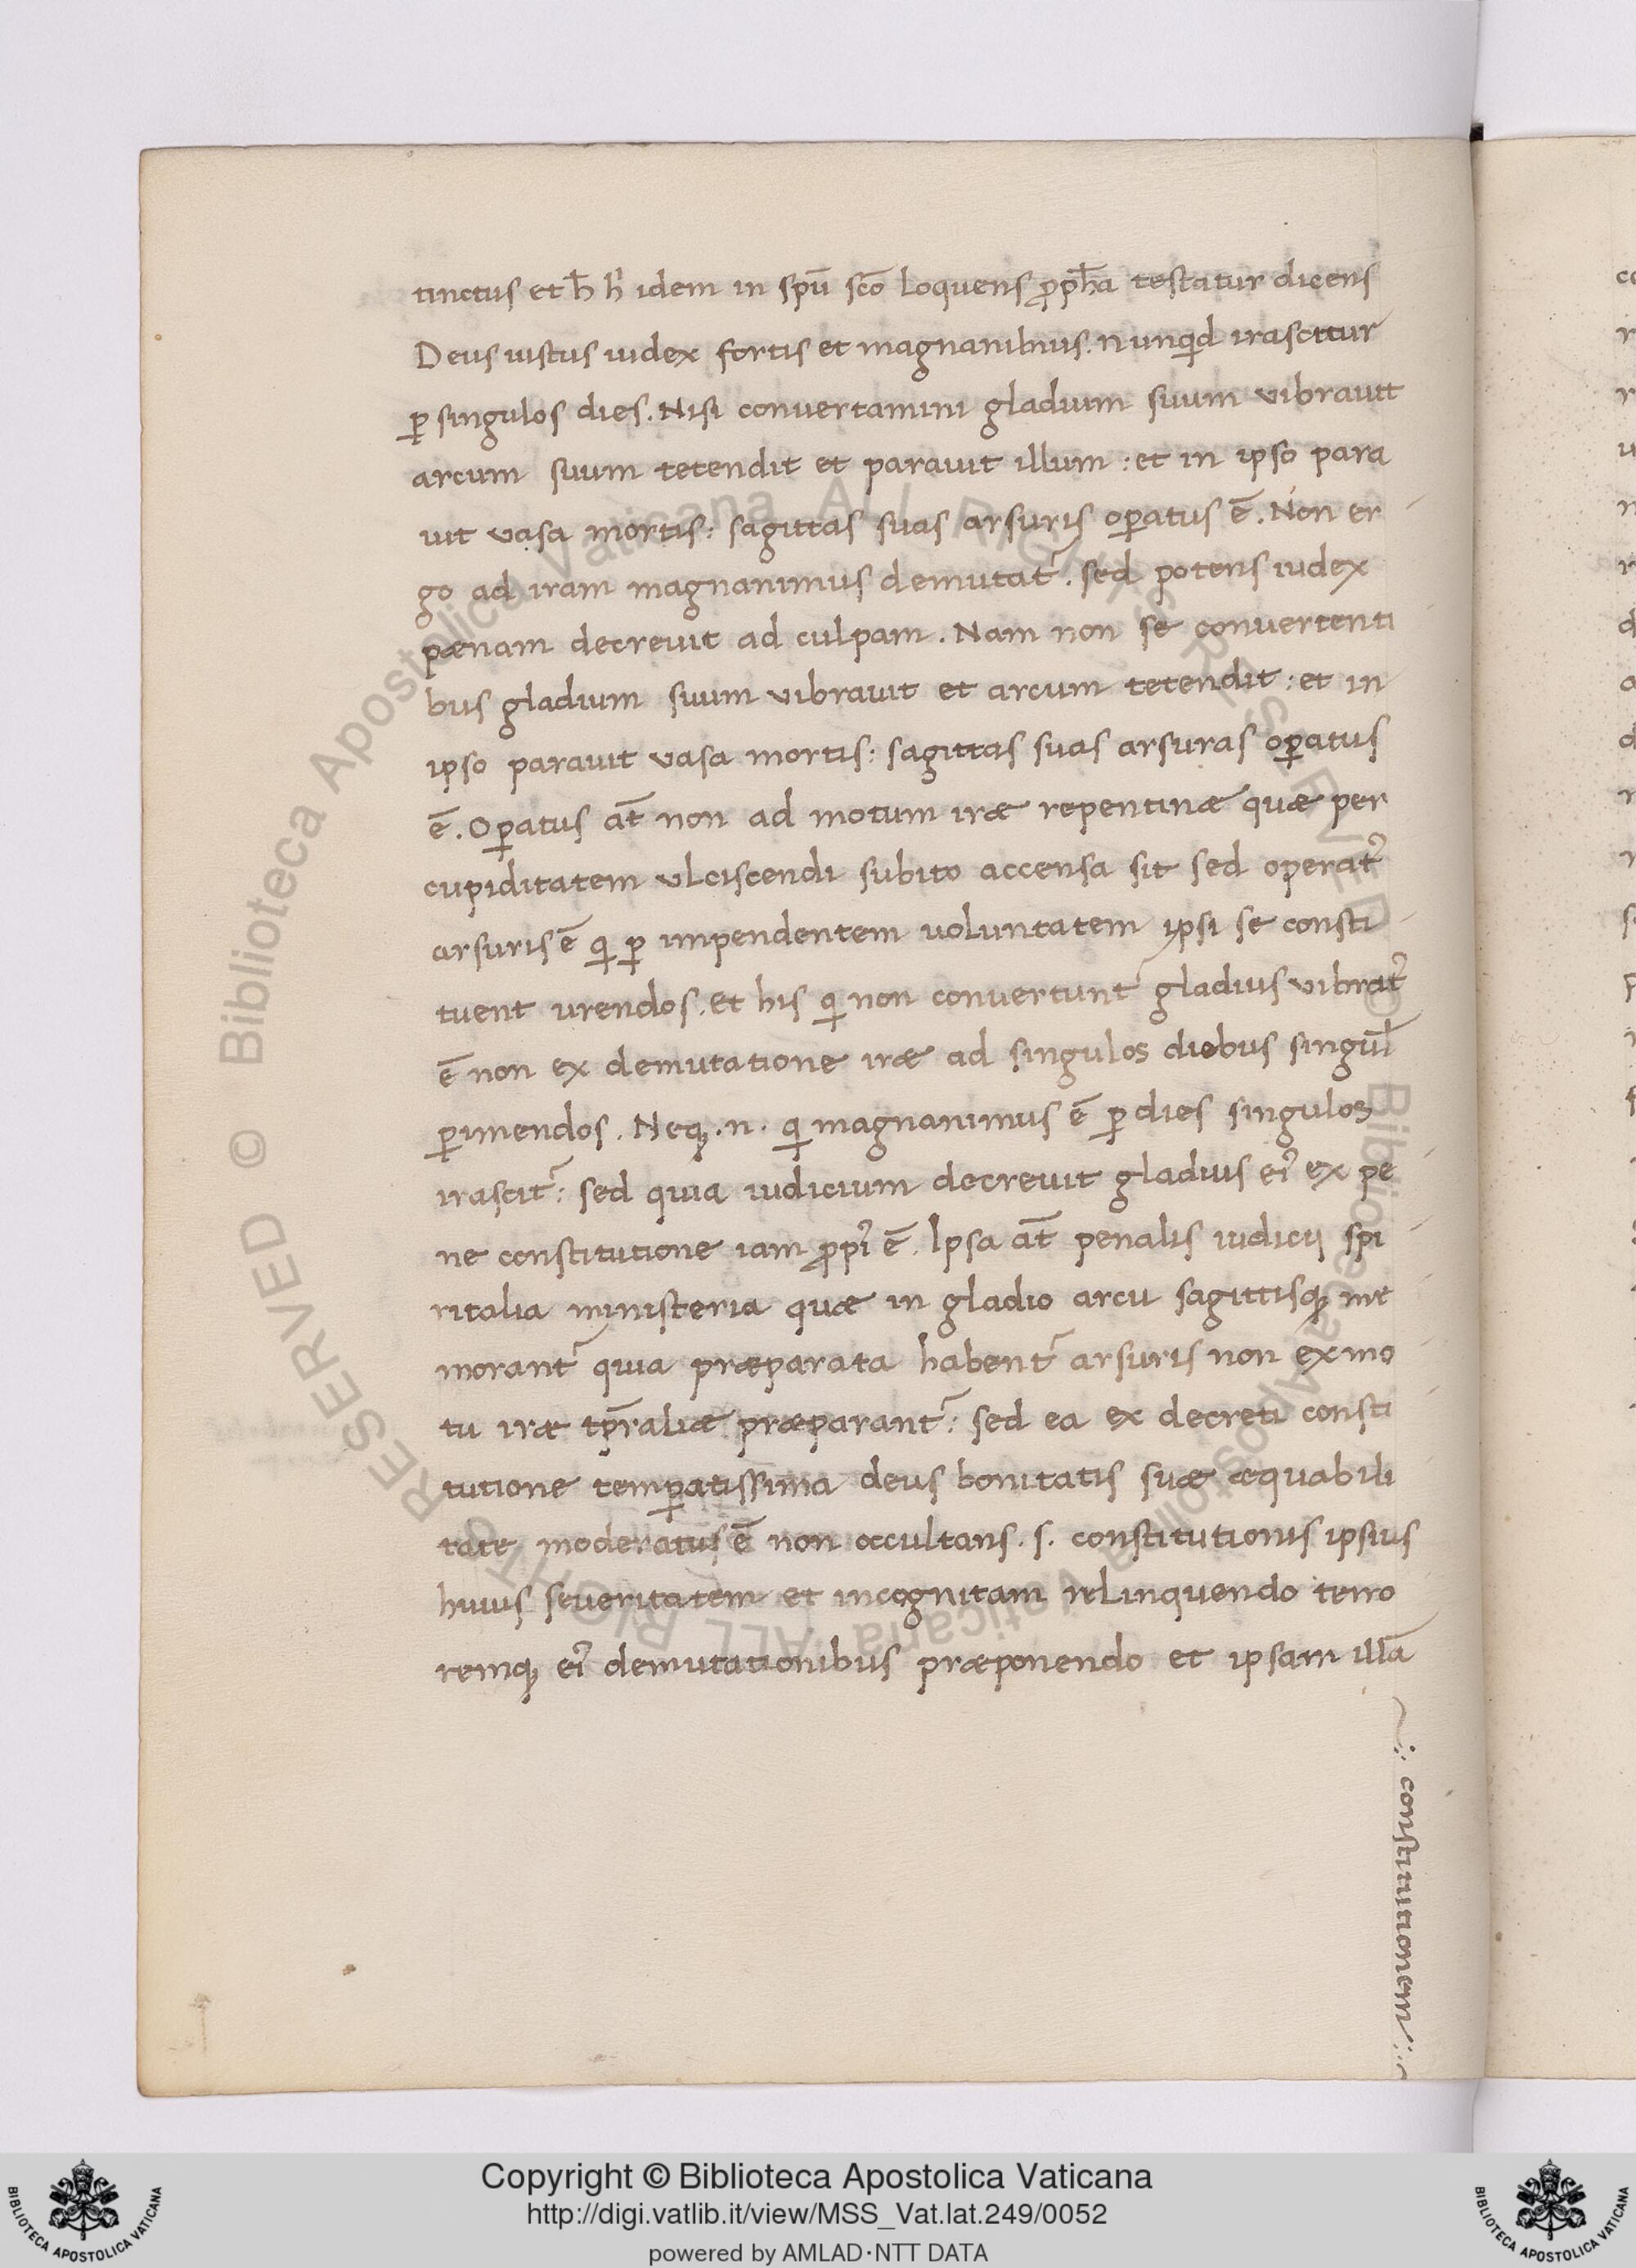 tinctus et h̄ hͥ idem in spū scō loquens ꝓph̄a testatur dicens
Deus iustus iudex fortis et magnanibmus. nunqͥd irascitur
ꝑ singulos dies. Nisi conuertamini gladium suum vibrauit
arcum suum tetendit et parauit illum : et in ipso para
uit vasa mortis : sagittas suas arsuris oꝑatus ē. Non er
go ad iram magnanimus demutat᷑. sed potens iudex
pænam decreuit ad culpam. Nam non se conuertenti
bus gladium suum vibrauit et arcum tetendit : et in
ipso parauit vasa mortis : sagittas suas arsuras oꝑatus
ē. Oꝑatus at̄ non ad motum iræ repentinæ quæ per
cupiditatem vlciscendi subito accensa sit sed operat᷒
arsuris ē qͥ ꝑ impendentem uoluntatem ipsi se consti
tuent urendos. et his qͥ non conuertunt᷑ gladius vibrat᷒
ē non ex demutatione iræ ad singulos diebus singul̄
ꝑimendos. Neqꝫ .n. qͥ magnanimus ē ꝑ dies singulos
irascit᷑ : sed quia iudicium decreuit gladius ei᷒ ex pe
ne constitutione iam ꝓpͥ ē. Ipsa at̄ penalis iudicij spi
ritalia ministeria quæ in gladio arcu sagittisqꝫ me
morant᷑ quia præparata habent᷑ arsuris non ex mo
tu iræ tp̄raliæ præparant᷑ : sed ea ex decreti consti
tutione temꝑatissima deus bonitatis suæ æquabili
tate moderatus ē non occultans .s. constitutionis ipsius
huius seueritatem et incognitam relinquendo terro
remqꝫ ei᷒ demutationibus præponendo et ipsam illā
constitutionem
Copyright © Biblioteca Apostolica Vaticana
http://digi.vatlib.it/view/MSS_Vat.lat.249/0052
powered by AMLAD·NTT DATA
BIBLIOTECA APOSTOLICA VATICANA
BIBLIOTECA APOSTOLICA VATICANA